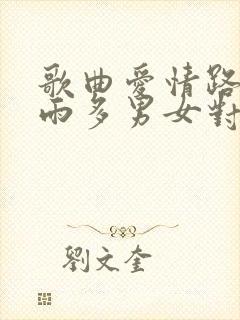 歌曲愛情路
兩多男女對
劉文奎